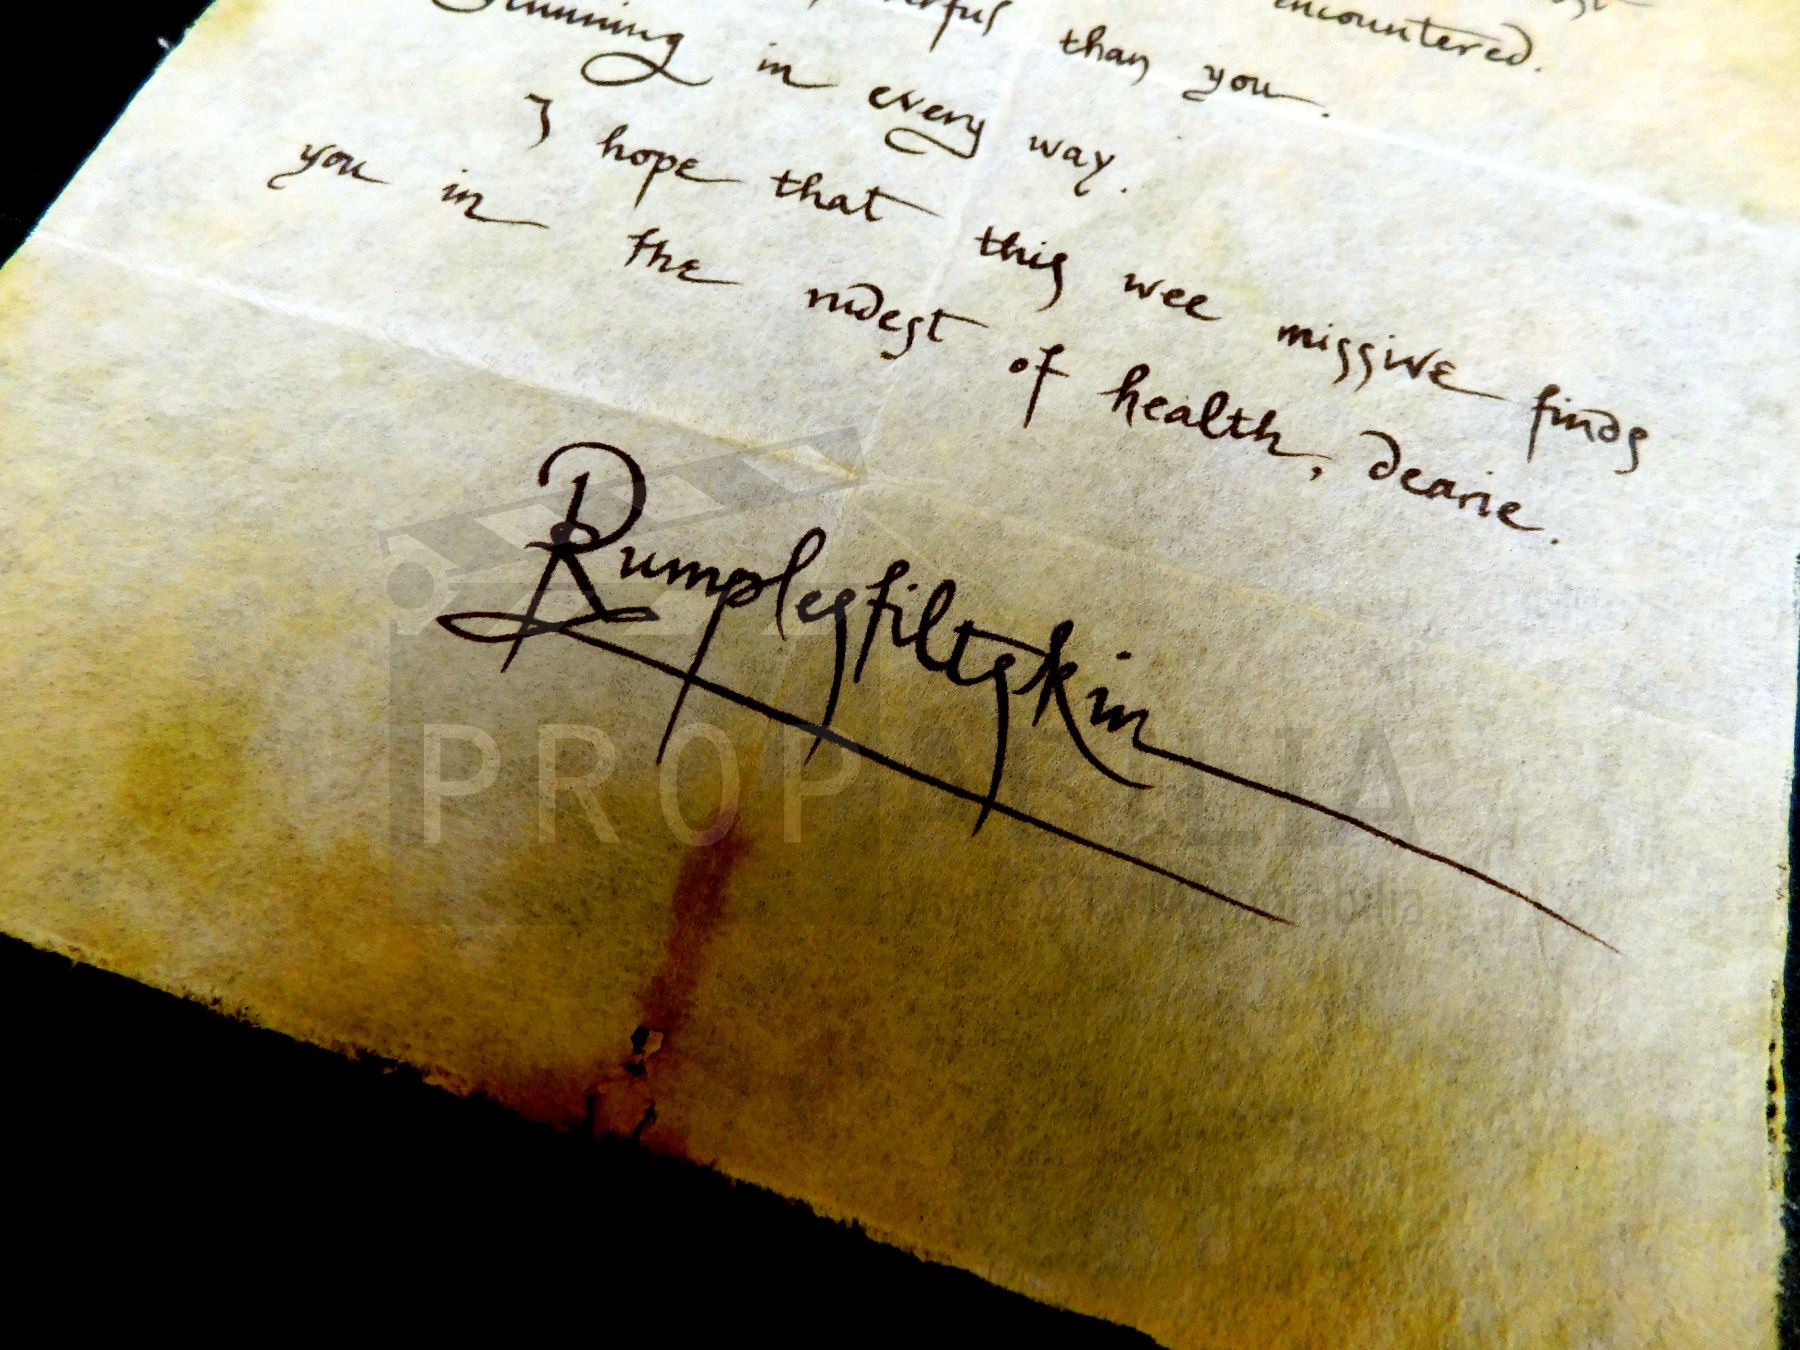 encountered.
than you.
Stunning in every way.
I hope that this wee missive finds
you in the rudest of health, dearie.
Rumplestiltskin
PROPABILIA
Movie & TV Memorabilia